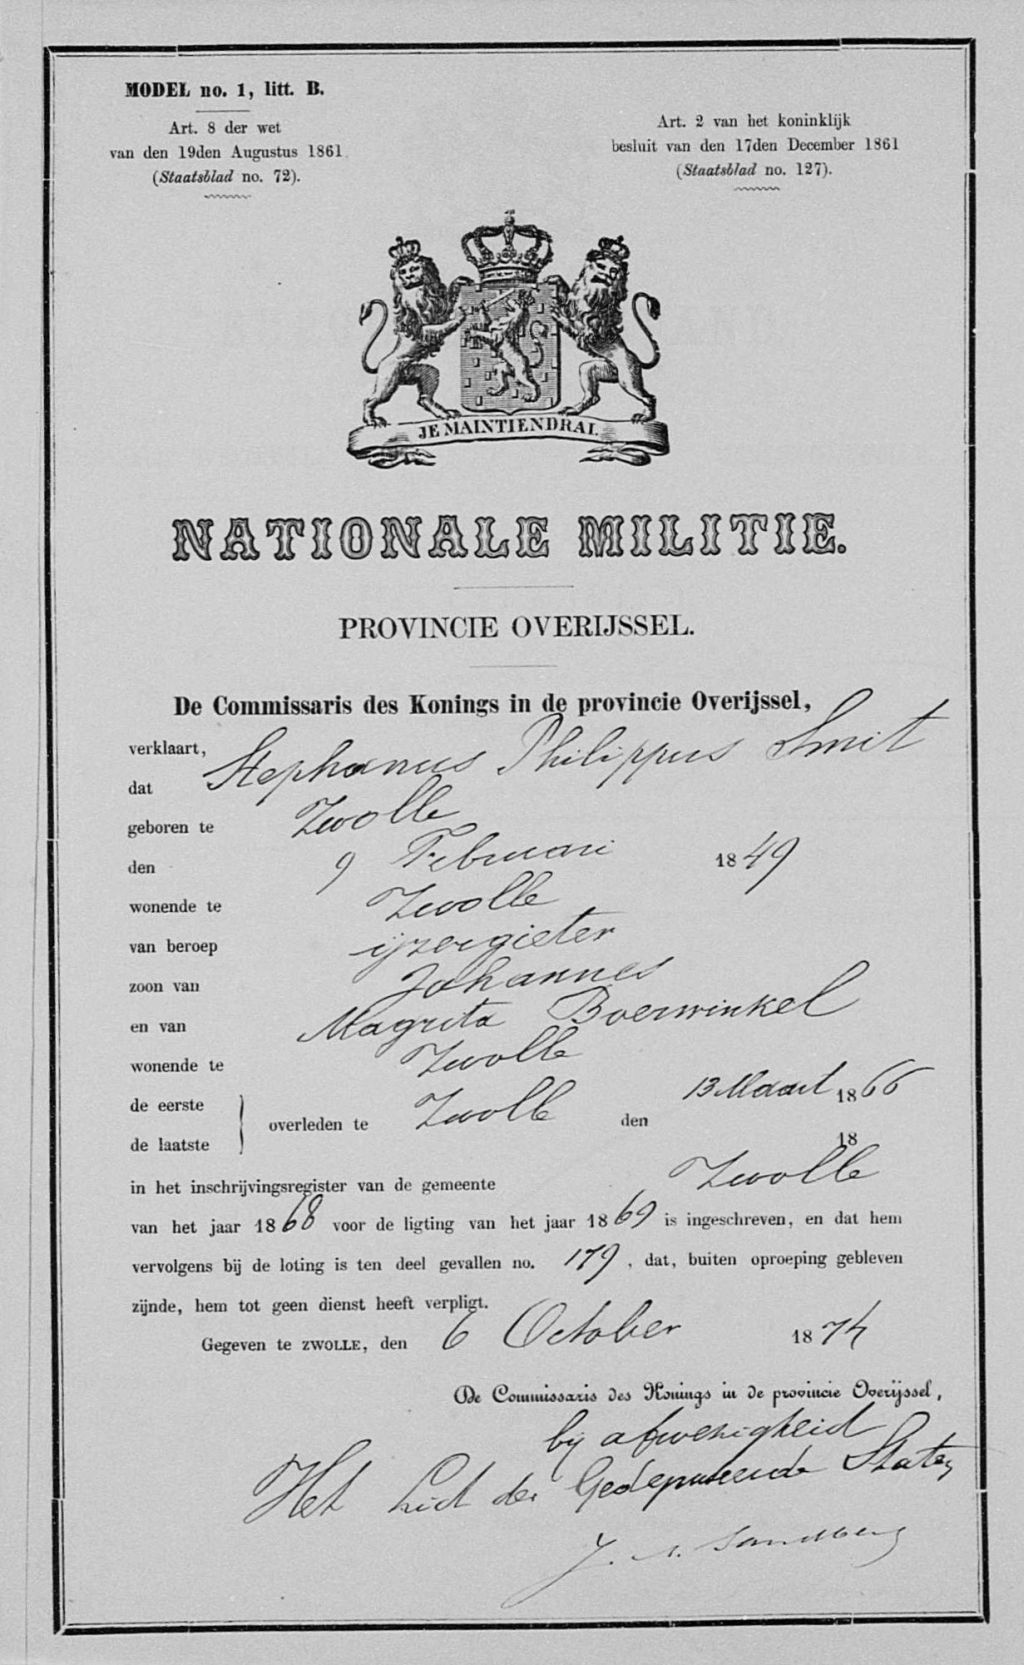 MODEL no. 1, litt. B.
Art. 8 der wet
van den 19den Augustus 1861
(Staatsblad no. 72).
Art. 2 van het koninklijk
besluit van den 17den December 1861
(Staatsblad no. 127).
JE MAINTIENDRAI.
NATIONALE MILITIE.
PROVINCIE OVERIJSSEL.
De Commissaris des Konings in de provincie Overijssel,
verklaart,
dat Stephanus Philippus Smit
geboren te Zwolle
den 9 Februari 1849
wonende te Zwolle
van beroep ijzergieter
zoon van Johannes
en van Magrita Boerwinkel
wonende te Zwolle
de eerste
de laatste } overleden te Zwolle den 13 Maart 1866
18
in het inschrijvingsregister van de gemeente Zwolle
van het jaar 1868 voor de ligting van het jaar 1869 is ingeschreven, en dat hem
vervolgens bij de loting is ten deel gevallen no. 179, dat, buiten oproeping gebleven
zijnde, hem tot geen dienst heeft verpligt.
Gegeven te ZWOLLE, den 6 October 1874
De Commissaris des Konings in de provincie Overijssel,
bij afwezigheid
Het Lid der Gedeputeerde Staten
Sandberg